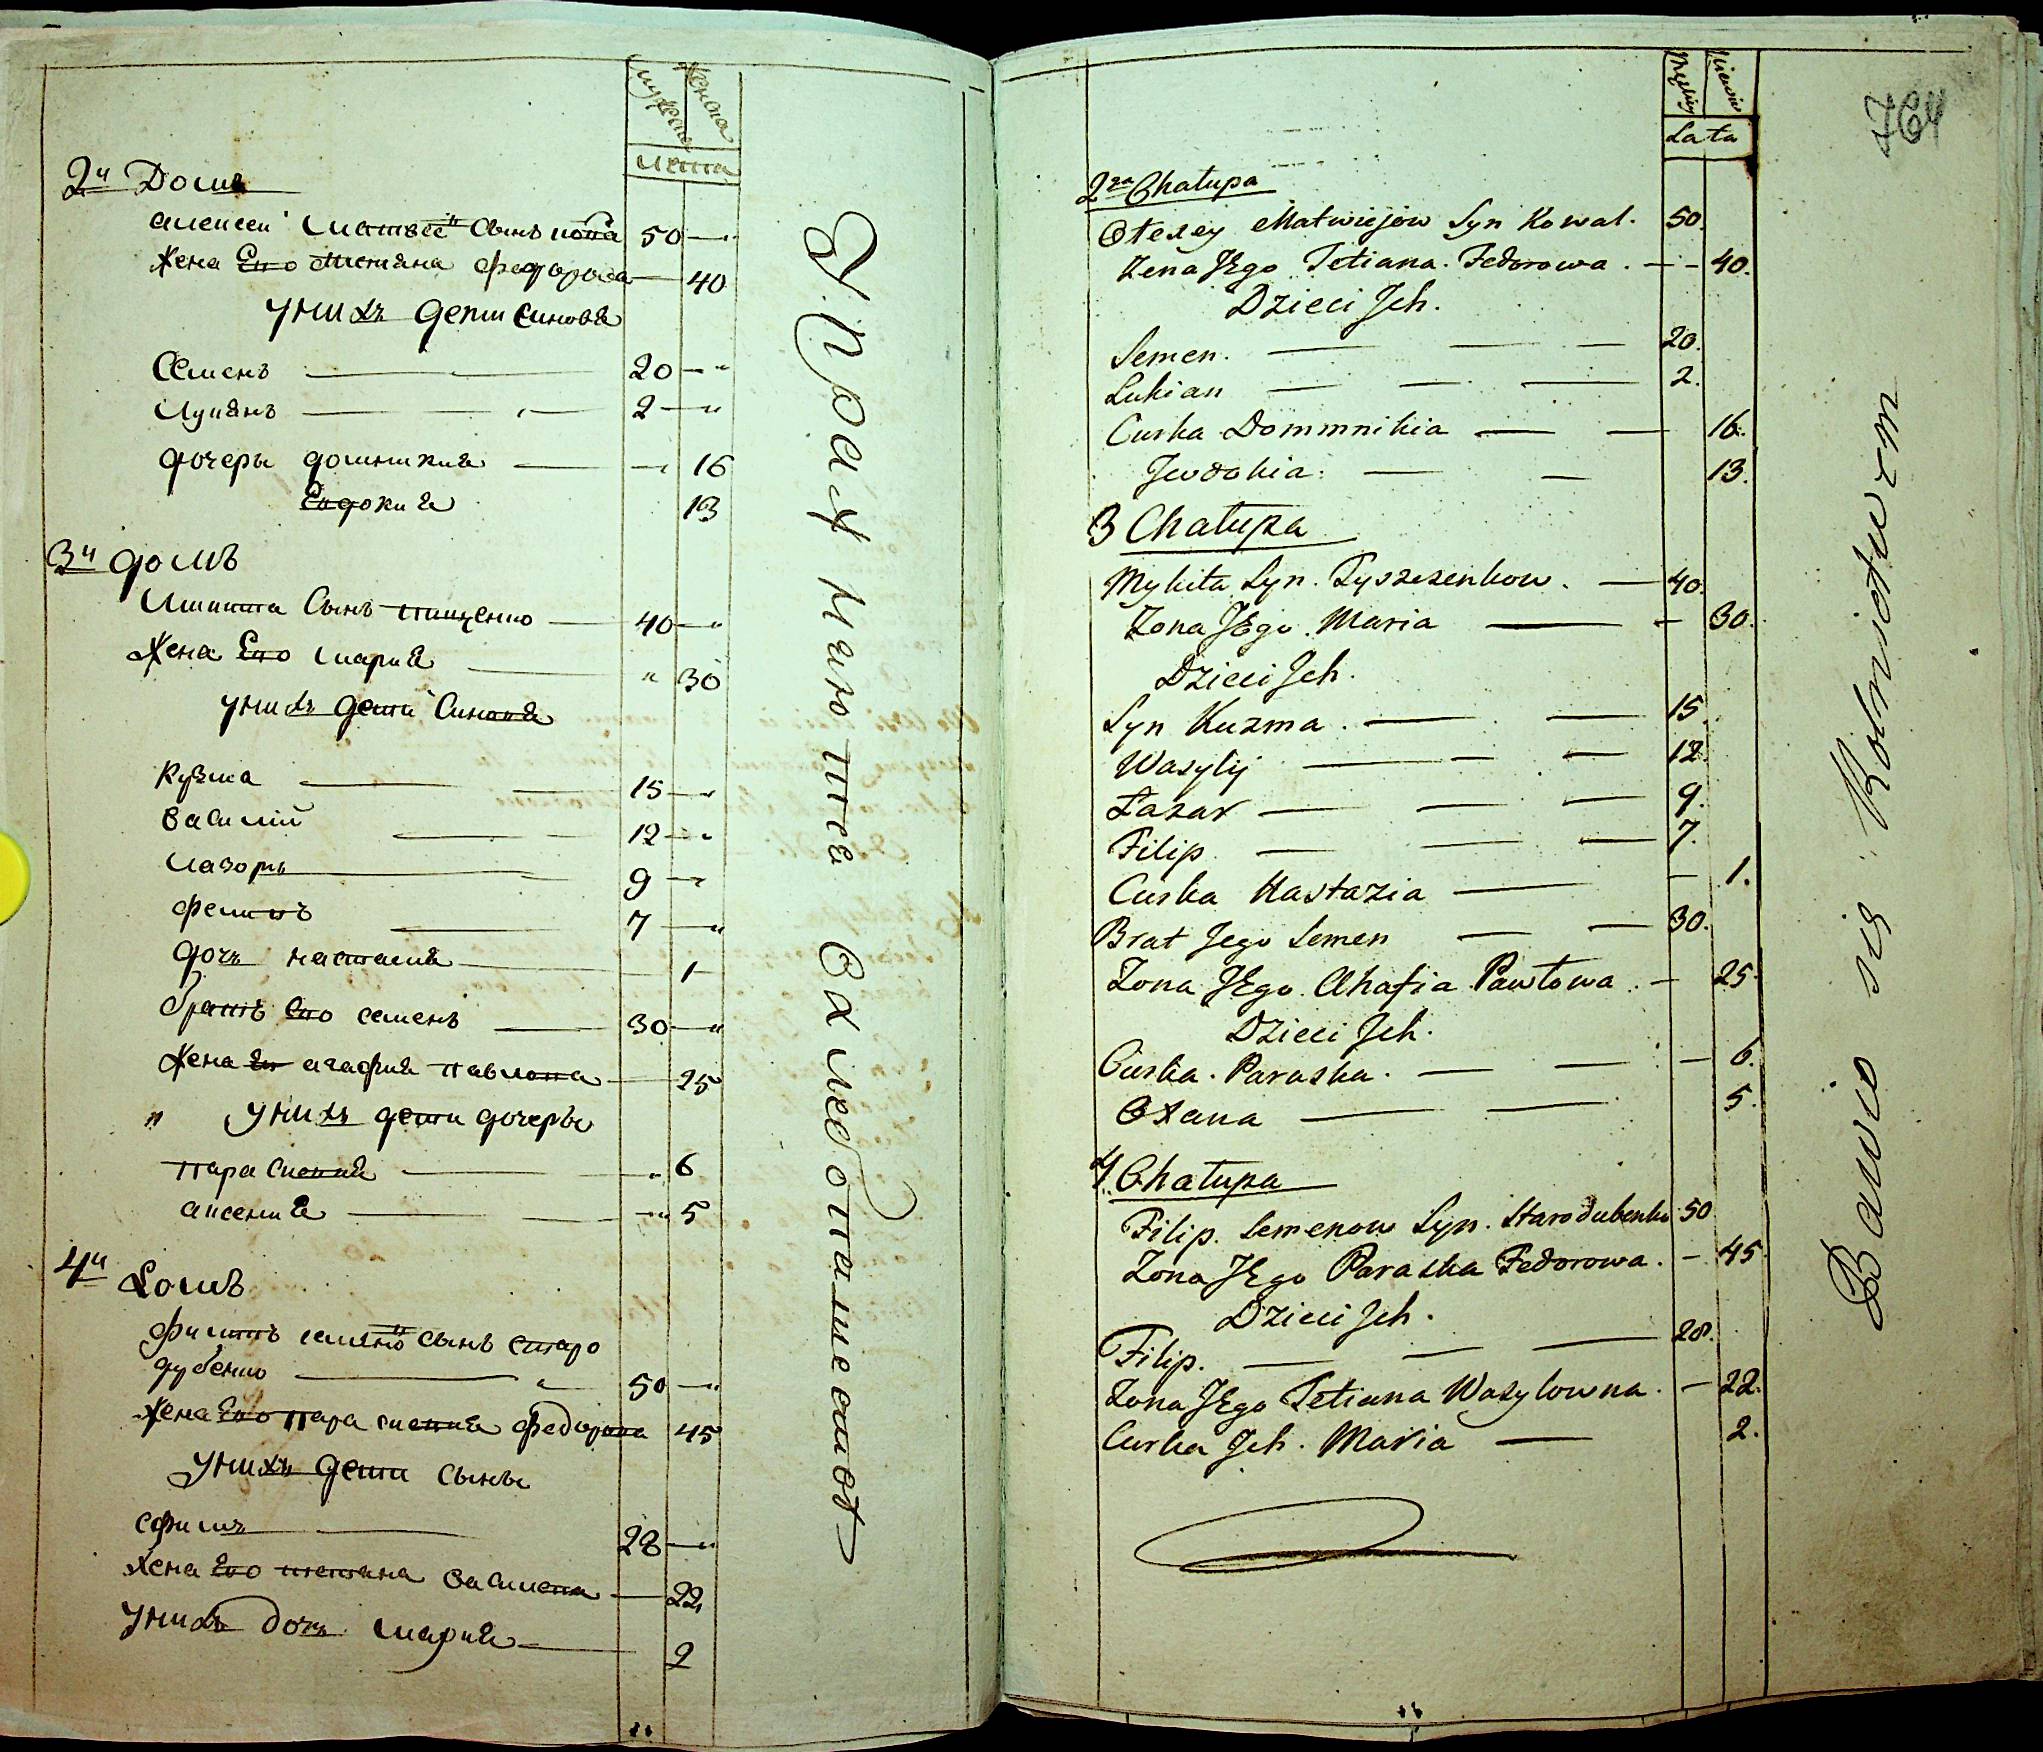 мужеска
женска
Лета
2й Домъ
Алексей Матвеевъ Сынъ 50 —
Жена Его Тетяна Федорова — 40
У них дети Синовя
Семенъ — 20 —
Лукянъ — 2 —
дочеры домникия — 16
Евдокия 13
3й домъ
Микита Сынъ Тищенко — 40 —
Жена Его Мария — 30
У них дети Синовя
Кузма — 15 —
Василий — 12 —
Лазоръ — 9 —
Филипъ — 7 —
дочь настасия — 1
братъ Его семенъ — 30 —
Жена Его агафия павлова — 25
У них дети дочеры
Параскевия — 6
аксения — 5
4й домъ
Филипъ семеновъ сынъ старо
дубенко — 50 —
Жена Его параскевия федорова 45
У них дети сыны
— 28 —
Жена Его тетяна Василева — 22
У них дочь мария — 2
Упражняются в хлебопашестве
764
Męskiey
Lata
2ga Chałupa
Ołexey Matwiejow Syn Kowal. 50.
Żena JEgo Tetiana Fedorowa. — 40.
Dzieci Jch.
Semen. — 20.
Lukian — 2.
Curka Dommnikia — 16.
Jewdokia. — 13.
3 Chałupa
Mykita Syn. Tyszczenkow. — 40.
Żona JEgo Maria — 30.
Dzieci Jch.
Syn Kuzma. — 15.
Wasylij — 12.
Łazar — 9.
Filip — 7.
Curka Nastazia — 1.
Brat Jego Semen — 30.
Żona JEgo Ahafia Pawłowa. — 25.
Dzieci Jch.
Curka. Paraska. — 6.
Oxana — 5.
4. Chałupa
Filip. Semenow Syn. Starodubenko 50
Żona JEgo Paraska Fedorowa. — 45.
Dzieci Jch.
Filip. — 28.
Żona JEgo Tetiana Wasylowna. — 22.
Curka Jch. Maria — 2.
Bawio się Rolnictwem